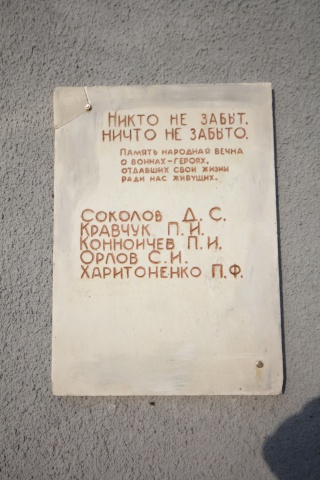 Никто не забыт,
ничто не забыто.
Память народная вечна
о воинах-героях,
отдавших свои жизни
ради нас живущих.
Соколов Д. С.
Кравчук П. И.
Конноичев П. И.
Орлов С. И.
Харитоненко П. Ф.